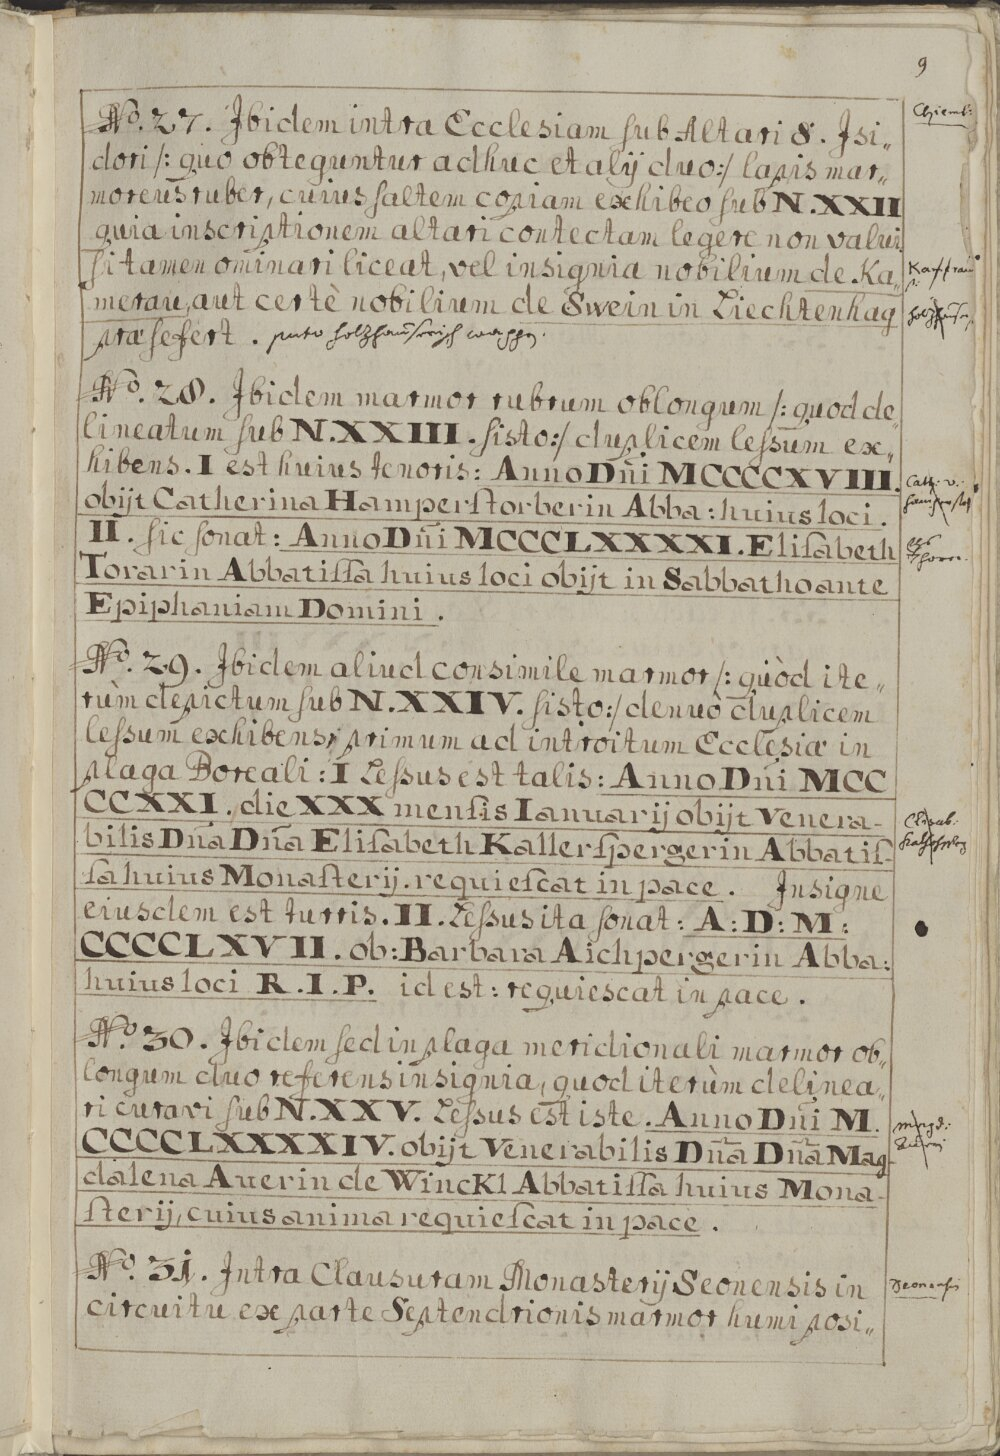 9
Chiemb:
No. 27. Ibidem intra Ecclesiam sub Altari S. Isi„
dori /: quo obteguntur adhuc et alÿ duo:/ lapis mar„
moreus ruber, cuius saltem copiam exhibeo sub N. XXII
quia inscriptionem altari contectam legere non valui
si tamen ominari liceat, vel insignia nobilium de Ka„
merau, aut certè nobilium de Swein in Liechtenhag
præsefert. puto holzhauserisch wappen.
No. 28. Ibidem marmor rubrum oblongum /: quod de„
lineatum sub N. XXIII. sisto:/ duplicem lessum ex„
hibens. I est huius tenoris: Anno Dñi MCCCCXVIII.
obijt Catherina Hamperstorberin Abba: huius loci.
II. sic sonat: Anno Dñi MCCCLXXXXI. Elisabeth
Torarin Abbatissa huius loci obijt in Sabbatho ante
Epiphaniam Domini.
No. 29. Ibidem aliud consimile marmor /: quòd ite„
rùm depictum sub N. XXIV. sisto:/ denuò duplicem
lessum exhibens, primum ad introitum Ecclesiæ in
plaga Boreali: I Lessus est talis: Anno Dñi MCC
CCXXI. die XXX mensis Ianuarij obijt Venera-
bilis Dña Dña Elisabeth Kallerspergerin Abbatis-
sa huius Monasterij. requiescat in pace. Insigne
eiusdem est turris. II. Lessus ita sonat: A: D: M:
CCCCLXVII. ob: Barbara Aichpergerin Abba:
huius loci R. I. P. id est: requiescat in pace.
Elisab:
No. 30. Ibidem sed in plaga meridionali marmor ob„
longum duo referens insignia, quod iterùm delinea„
ri curavi sub N. XXV. Lessus est iste. Anno Dñi M.
CCCCLXXXXIV. obijt Venerabilis Dña Dña Mag-
dalena Auerin de Winckl Abbatissa huius Mona-
sterij, cuius anima requiescat in pace.
Magd:
No. 31. Intra Clausuram Monasterÿ Seonensis in
circuitu ex parte Septendrionis marmor humi posi„
Seonensis